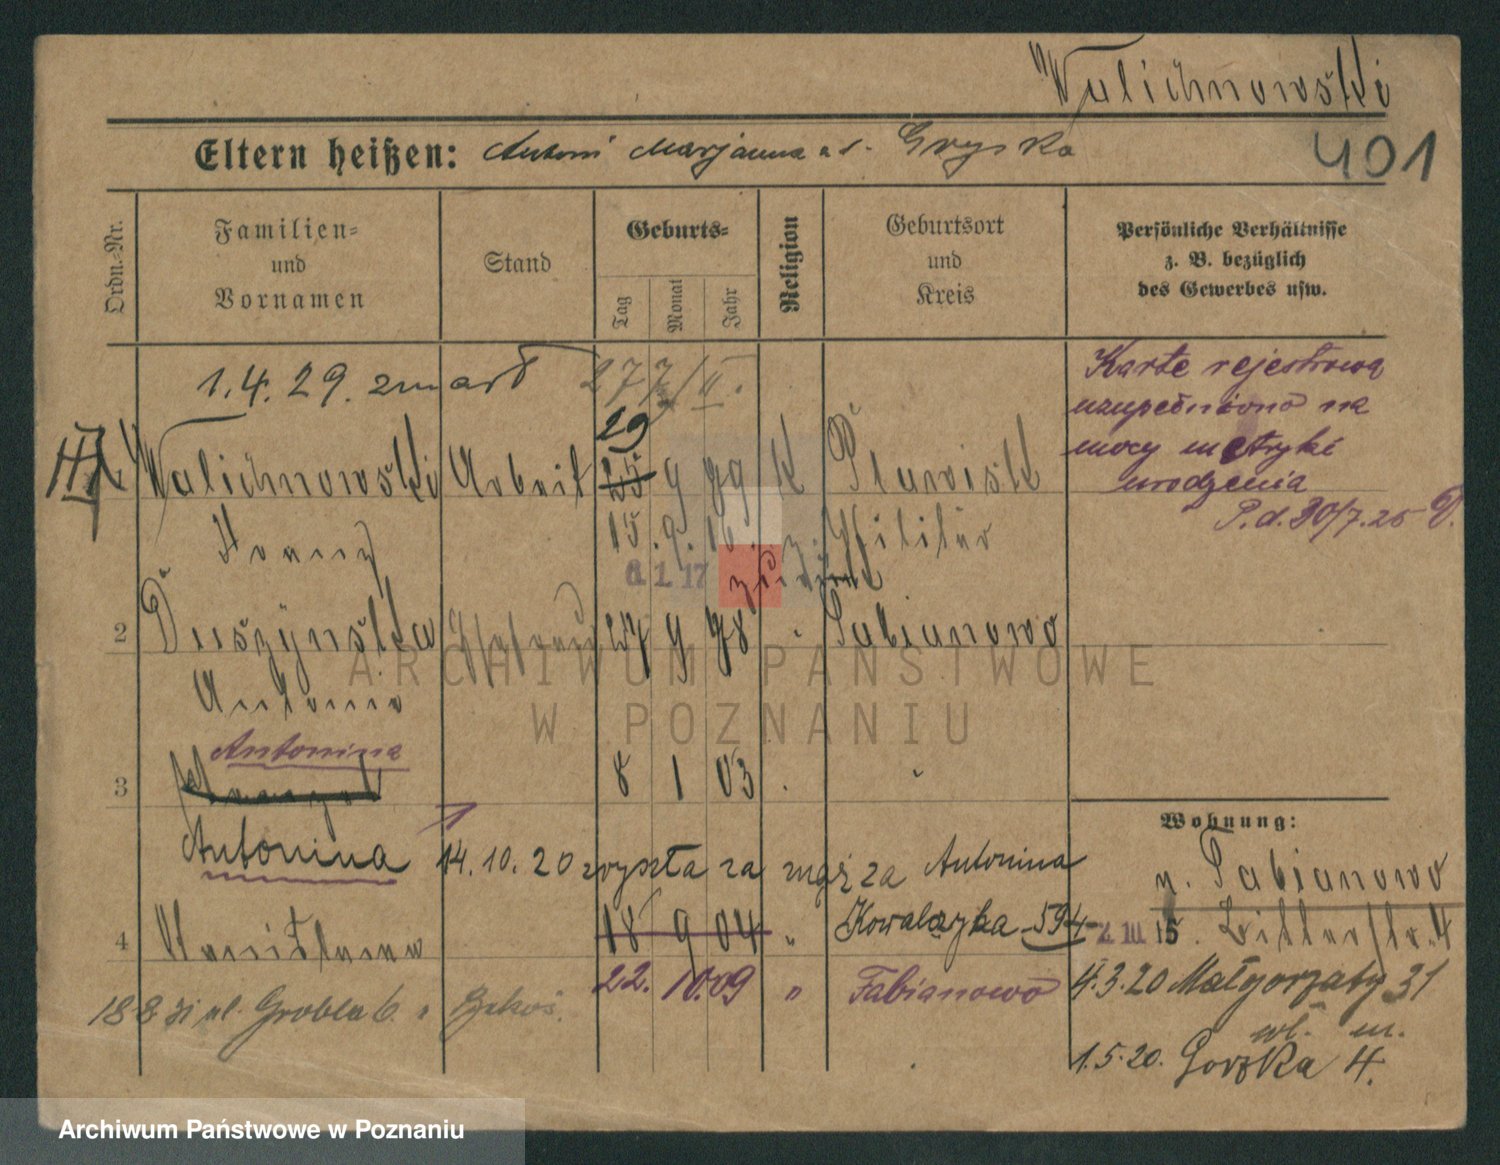 Walichnowski
401
Eltern heißen: Antoni Marjanna u d. Gryska
Ordn.-Nr.
Familien-
und
Vornamen
Stand
Geburts-
Tag
Monat
Jahr
Religion
Geburtsort
und
Kreis
Persönliche Verhältnisse
z. B. bezüglich
des Gewerbes usw.
1.4.29. zmarł
Karte rejestrową
uzupełniono na
mocy metryki
urodzenia
P.d. 30/7.25
29
Walichnowski Arbeit 25 9 79 K Plawisk
Franz 15.9.16. z. Militär
6 1 17 zurück
2 Duszynska 27 9 78 Fabianowo
Antonie
Antonina
3 8 1 03
Antonina 14.10.20 wyszła za mąż za Antonina
Kowalczyka 594
4 Stanisława 18 9 04 "
22. 10.09 " Fabianowo
18 8 31 ul. Grobla 6.
Wohnung:
n. Fabianowo
2 III 15. 4
4.3.20 Małgorzaty 31
wł. m.
1.5.20. Gorzka 4.
ARCHIWUM PAŃSTWOWE
W POZNANIU
Archiwum Państwowe w Poznaniu